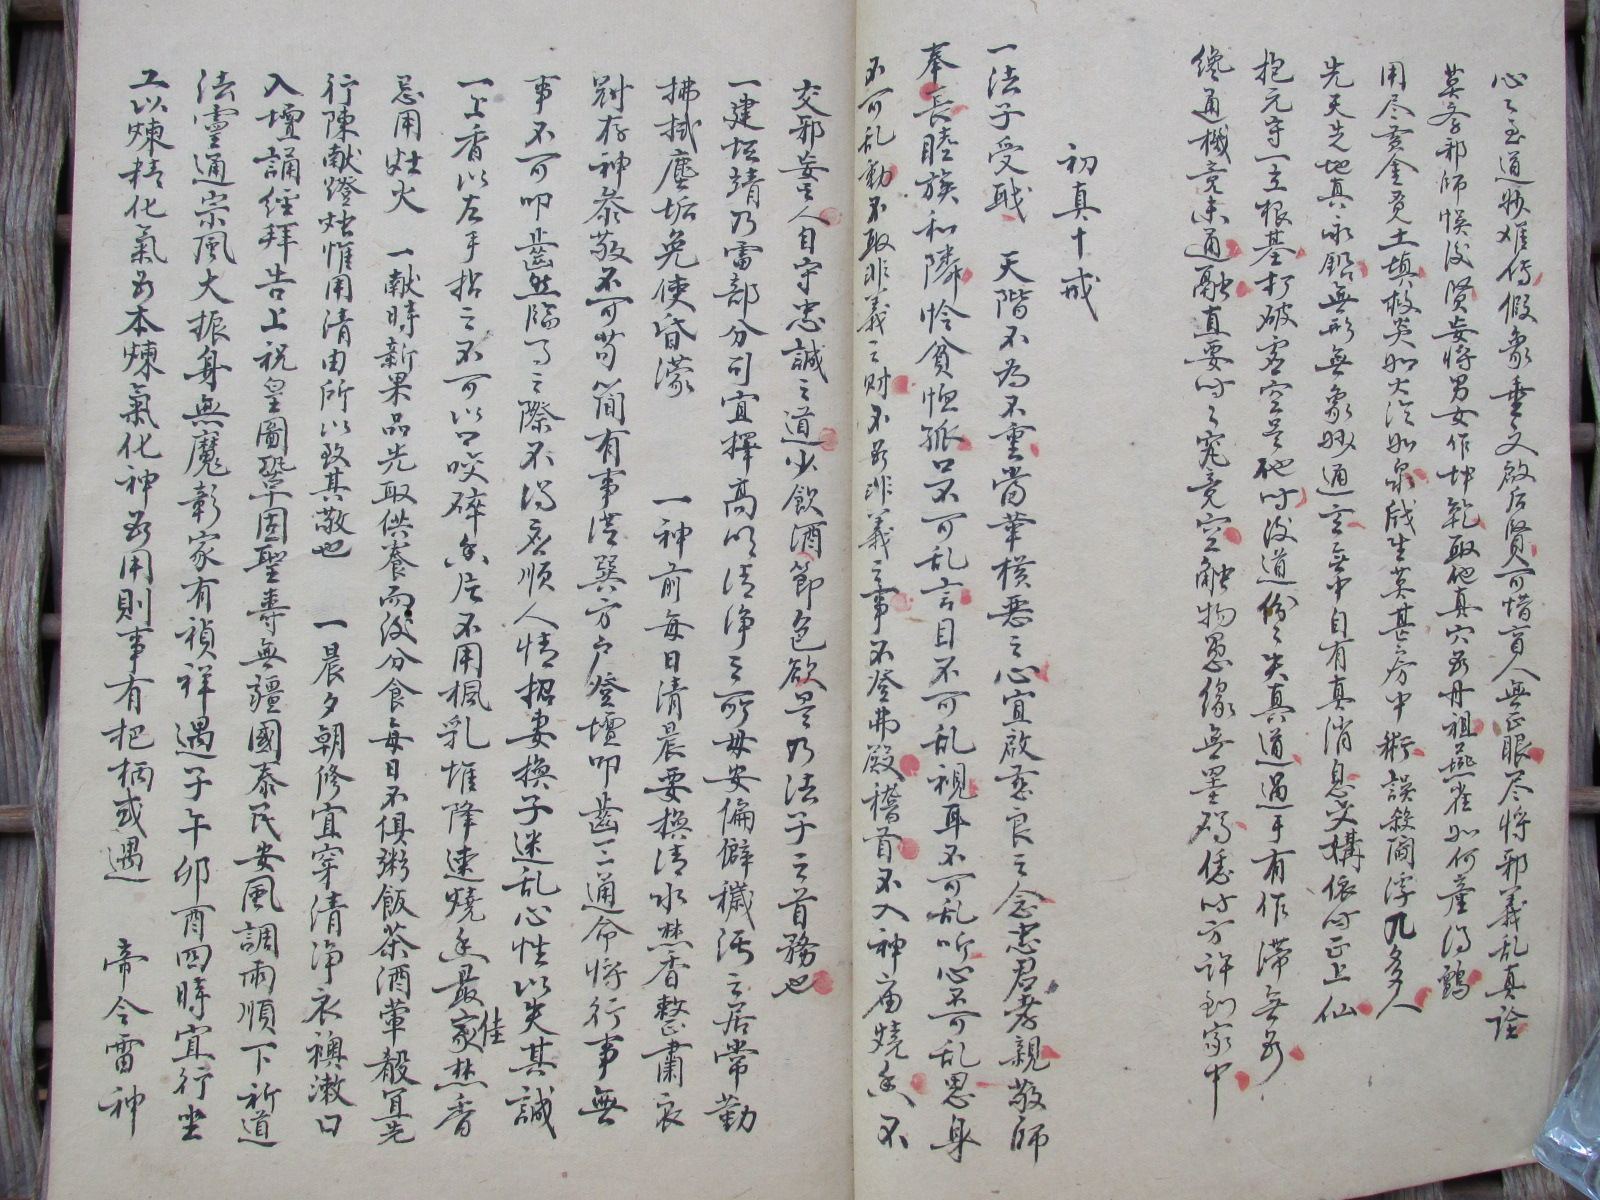 心心至道妙难傳假象垂文啟后賢可惜盲人無正眼尽將邪義乱真詮
莫夸邪師悞後賢妄將男女作坤乾取他真穴為丹祖燕雀如何產得鶴
用尽黄金覓土填救炎如火冷如泉戕生莫甚房中術誤殺閻浮多人
先天先地真永鉛無形無象妙通玄無中自有真消息交媾依时正上仙
抱元守一立根基打破虛空是祂时後道份份失真道遇手有作滞無為
纔通機竟未通融直要时时究竟空触物遇缘無罣碍儘时方許到家中
初真十戒
一法子受戒 天階不為不重當革横惡之心宜啟慈良之念忠君孝親敬師
奉長睦族和隣怜貧恤孤口不可乱言目不可乱視耳不可乱听心不可乱思身
不可乱動不取非義之财不为非義之事不登弗殿稽首不入神庙燒香不
交邪妄之人自守忠誠之道少飲酒節色欲是乃法子之首務也
一建坛靖乃雷部分司宜擇高明清净之所毋安偏僻穢污之居常勤
拂拭塵垢免使昏濛 一神前每日清晨要換清水焚香整肅衣
冠存神恭敬不可苟简有事從巽方户登壇叩齒三通命將行事無
事不可叩齒然臨了之際不得妄順人情招妻換子迷乱心性以失其誠
一上香以左手拈之不可以口咬碎香店不用楓乳惟降速燒香最佳家焚香
忌用灶火 一献時新果品先取供養而後分食每日不俱粥飯茶酒葷殽宜先
行陳献燈烛惟用清由所以致其敬也 一晨夕朝修宜穿清淨衣襖漱口
入壇誦經拜告上祝皇圖鞏固聖壽無疆國泰民安風調雨順下祈道
法靈通宗風大振身無魔彰家有禎祥遇子午卯酉四時宜行坐
工以煉精化氣為本煉氣化神為用則事有把柄或遇 帝令雷神